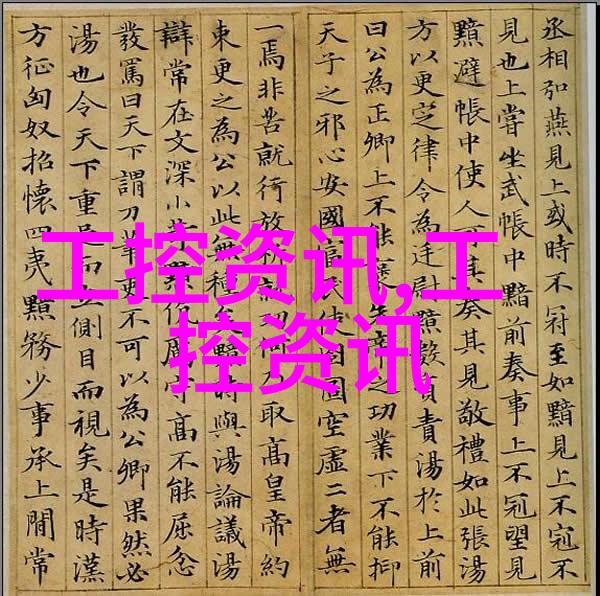 丞相弘燕見上或時不冠至如黯見上不冠不
見也上嘗坐武帳中黯前奏事上不冠望見
黯避帳中使人可其奏其見敬禮如此張湯
方以更定律令為廷尉黯數質責湯於上前
曰公為正卿上不能襃先帝之功業下不能抑
天子之邪心安國富民使囹圄空虛二者無
一焉非苦就行放析就功何取高皇帝約
束更之為公以此無種矣黯時與湯論議湯
辯常在文深小苛黯伉厲守高不能屈忿
發罵曰天下謂刀筆吏不可以為公卿果然必
湯也令天下重足而立側目而視矣是時漢
方征匈奴招懷四夷黯務少事承上閒常
工控资讯,工
控资讯